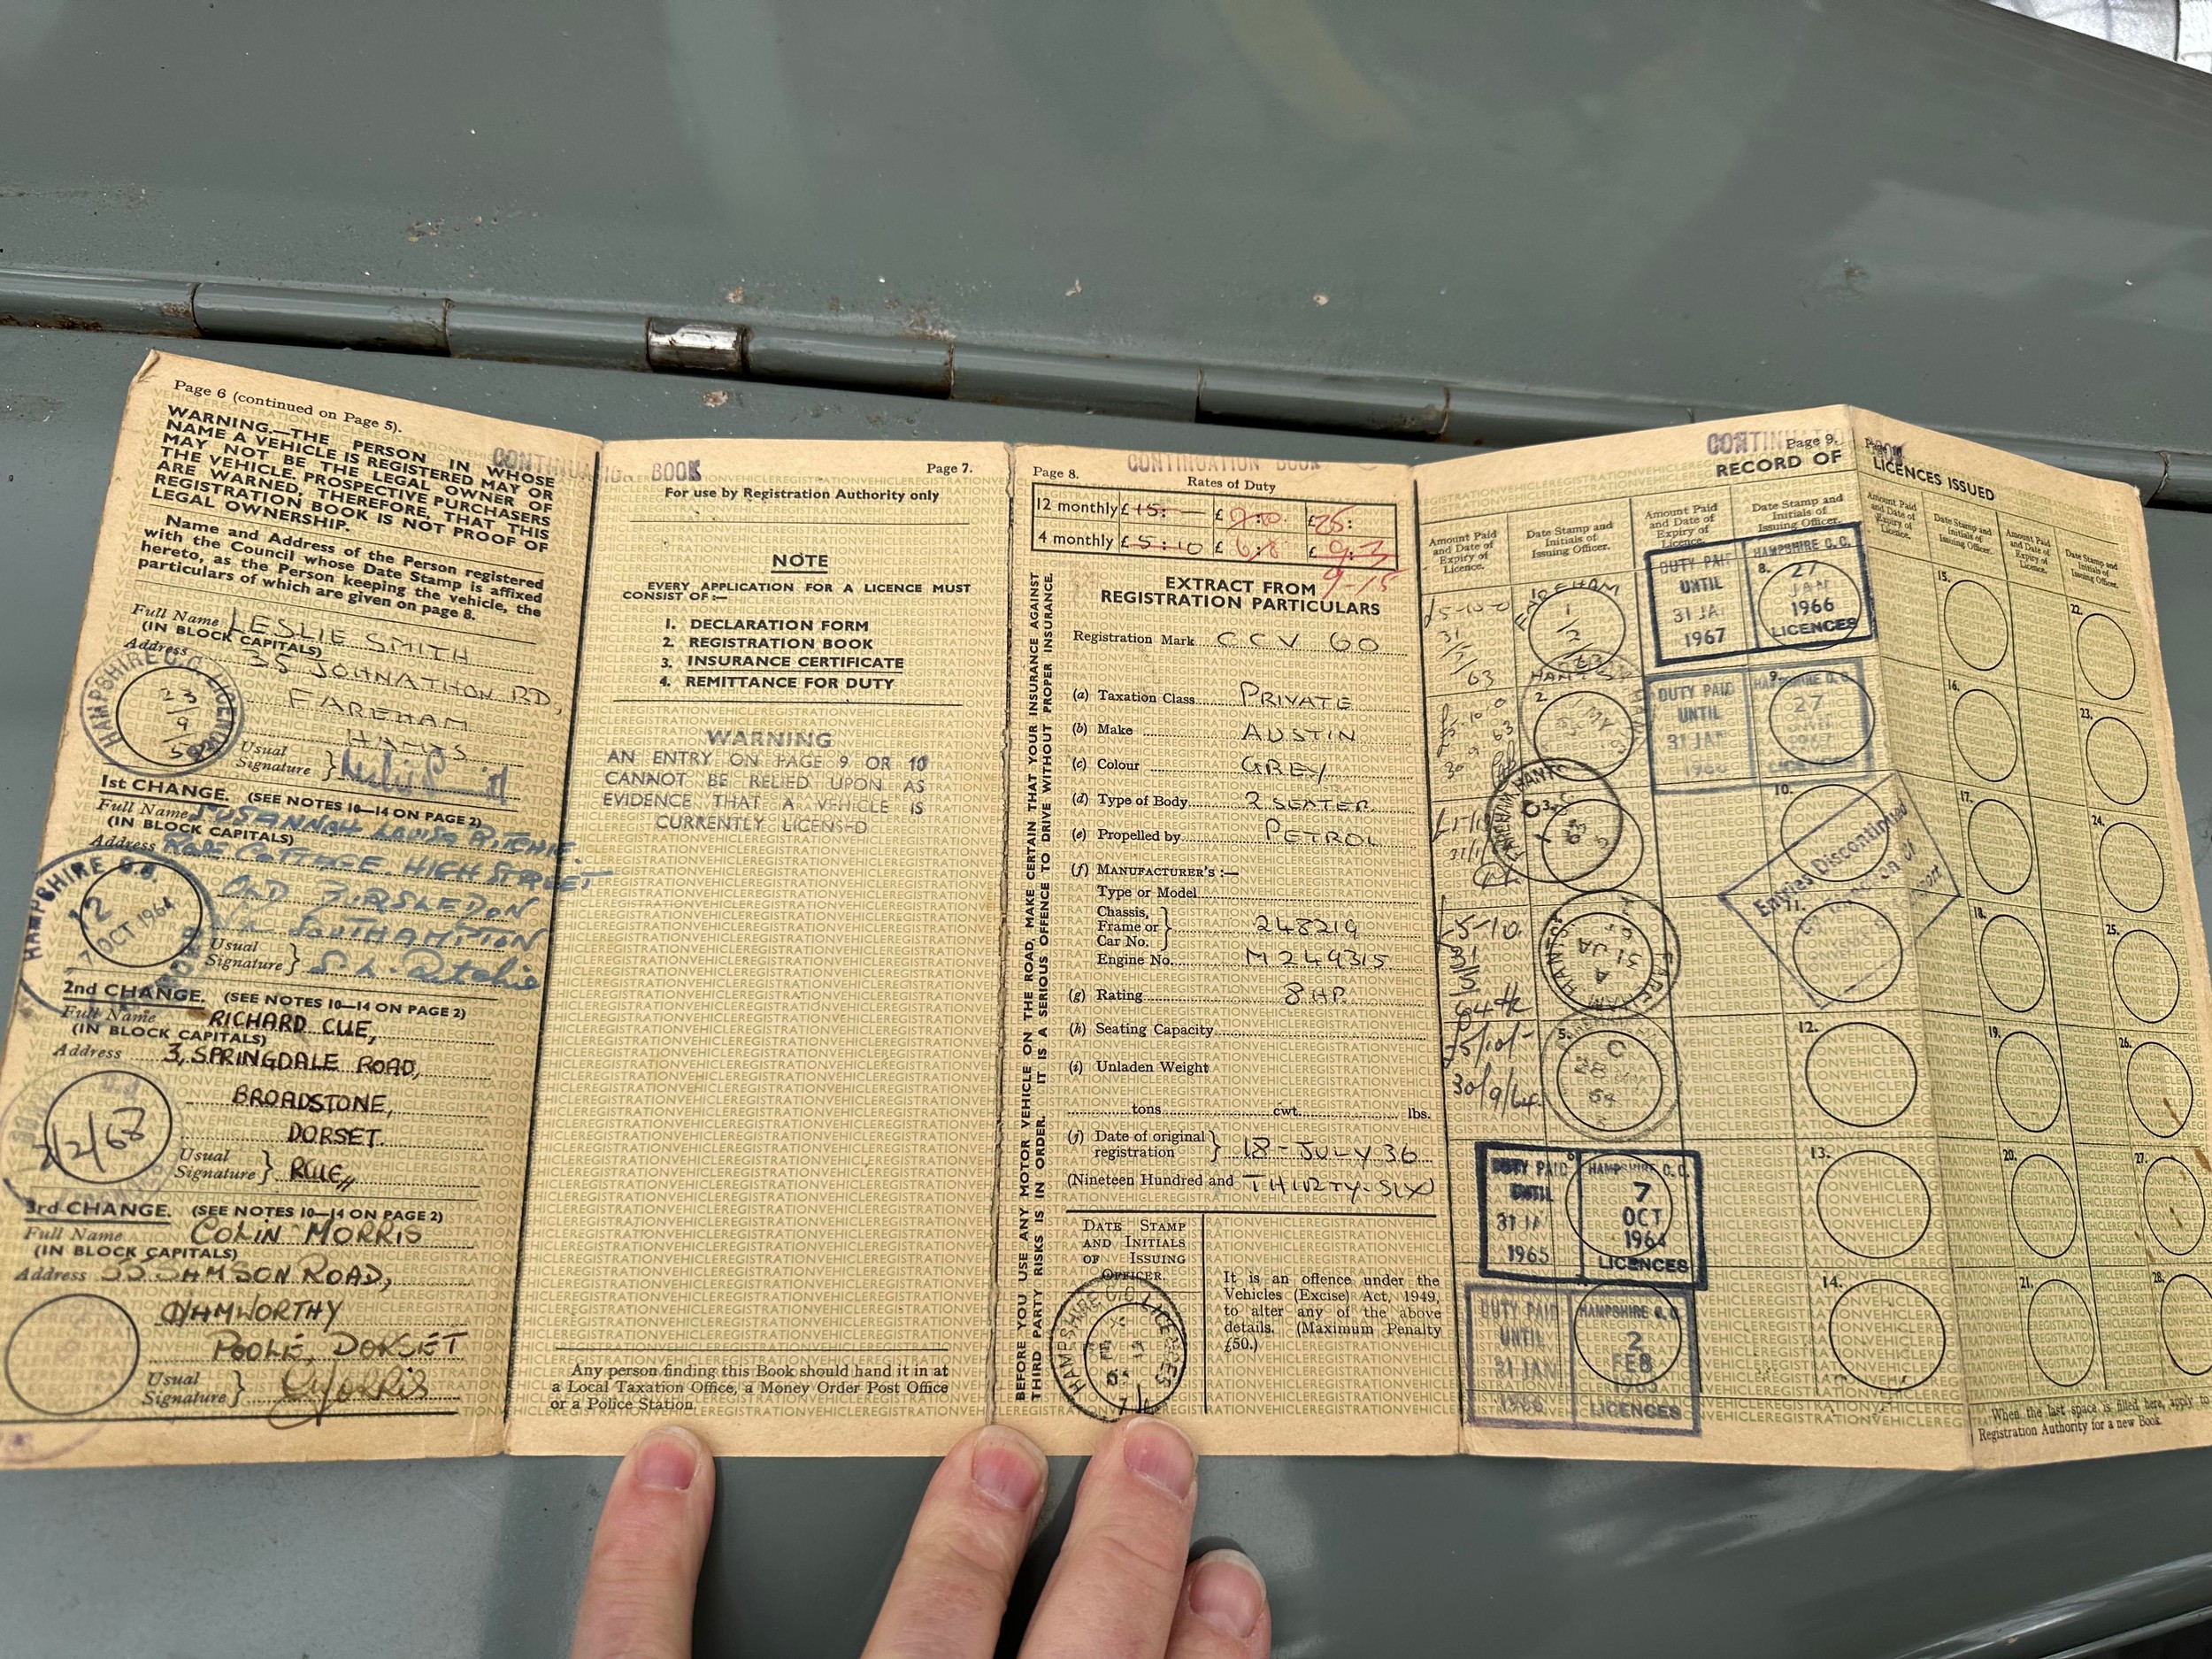 Page 6 (continued on Page 5).
WARNING.—THE PERSON IN WHOSE
NAME A VEHICLE IS REGISTERED MAY OR
MAY NOT BE THE LEGAL OWNER OF
THE VEHICLE, PROSPECTIVE PURCHASERS
ARE WARNED, THEREFORE, THAT THIS
REGISTRATION BOOK IS NOT PROOF OF
LEGAL OWNERSHIP.
Name and Address of the Person registered
with the Council whose Date Stamp is affixed
hereto, as the Person keeping the vehicle, the
particulars of which are given on page 8.
Full Name LESLIE SMITH
(IN BLOCK CAPITALS)
Address 35 JOHNATHON RD,
FAREHAM
HANTS
HAMPSHIRE C.C. LICENCES
23
9
Usual
Signature
1st CHANGE. (SEE NOTES 10—14 ON PAGE 2)
Full Name SUSANNAH LOUISA RITCHIE.
(IN BLOCK CAPITALS)
Address ROSE COTTAGE. HIGH STREET
OLD BURSLEDON
SOUTHAMPTON
HAMPSHIRE C.C.
OCT 1964
Usual
Signature S. L. Ritchie
2nd CHANGE. (SEE NOTES 10—14 ON PAGE 2)
Full Name RICHARD CUE,
(IN BLOCK CAPITALS)
Address 3, SPRINGDALE ROAD,
BROADSTONE,
DORSET.
Usual
Signature RCue
3rd CHANGE. (SEE NOTES 10—14 ON PAGE 2)
Full Name COLIN MORRIS
(IN BLOCK CAPITALS)
Address SAMSON ROAD,
HAMWORTHY
POOLE, DORSET
Usual
Signature CMorris
CONTINUATION BOOK
Page 7.
For use by Registration Authority only
NOTE
EVERY APPLICATION FOR A LICENCE MUST
CONSIST OF :—
1. DECLARATION FORM
2. REGISTRATION BOOK
3. INSURANCE CERTIFICATE
4. REMITTANCE FOR DUTY
WARNING
AN ENTRY ON PAGE 9 OR 10
CANNOT BE RELIED UPON AS
EVIDENCE THAT A VEHICLE IS
CURRENTLY LICENSED
Any person finding this Book should hand it in at
a Local Taxation Office, a Money Order Post Office
or a Police Station.
BEFORE YOU USE ANY MOTOR VEHICLE ON THE ROAD, MAKE CERTAIN THAT YOUR INSURANCE AGAINST
THIRD PARTY RISKS IS IN ORDER. IT IS A SERIOUS OFFENCE TO DRIVE WITHOUT PROPER INSURANCE.
CONTINUATION BOOK
Page 8.
Rates of Duty
12 monthly £15: — £ £25:
4 monthly £5:10 £6:8 £9:3
9-15
EXTRACT FROM
REGISTRATION PARTICULARS
Registration Mark CCV 60
(a) Taxation Class PRIVATE
(b) Make AUSTIN
(c) Colour GREY
(d) Type of Body 2 SEATER
(e) Propelled by PETROL
(f) MANUFACTURER'S :—
Type or Model
Chassis,
Frame or
Car No. 248219
Engine No. M249315
(g) Rating 8 HP.
(h) Seating Capacity
(i) Unladen Weight
tons cwt. lbs.
(j) Date of original
registration 18-JULY 36
(Nineteen Hundred and THIRTY-SIX)
DATE STAMP
AND INITIALS
OF ISSUING
OFFICER.
HAMPSHIRE C.C LICENCES
It is an offence under the
Vehicles (Excise) Act, 1949,
to alter any of the above
details. (Maximum Penalty
£50.)
CONTINUATION BOOK
Page 9.
RECORD OF LICENCES ISSUED
Amount Paid
and Date of
Expiry of
Licence.
Date Stamp and
Initials of
Issuing Officer.
Amount Paid
and Date of
Expiry of
Licence.
Date Stamp and
Initials of
Issuing Officer.
£5-10-0
31
63
FAREHAM
1
2
HANTS
2
FAREHAM HANTS
£5-10.
31
64
FAREHAM
HANTS
31 JA
5.
£5/10/-
30/9/64.
DUTY PAID
UNTIL
31 JAN
1965
HAMPSHIRE C.C.
7
OCT
1964
LICENCES
DUTY PAID
UNTIL
31 JAN
1966
HAMPSHIRE C.C.
2
FEB
LICENCES
DUTY PAID
UNTIL
31 JAN
1967
HAMPSHIRE C.C.
8. 27
JAN
1966
LICENCES
DUTY PAID
UNTIL
31 JAN
HAMPSHIRE C.C.
9.
27
LICENCES
10.
Entries Discontinued
11.
12.
13.
14.
Amount Paid
and Date of
Expiry of
Licence.
Date Stamp and
Initials of
Issuing Officer.
Amount Paid
and Date of
Expiry of
Licence.
Date Stamp and
Initials of
Issuing Officer.
15.
16.
17.
18.
19.
20.
21.
22.
23.
24.
25.
26.
27.
28.
When the last space is filled here, apply to
Registration Authority for a new Book.